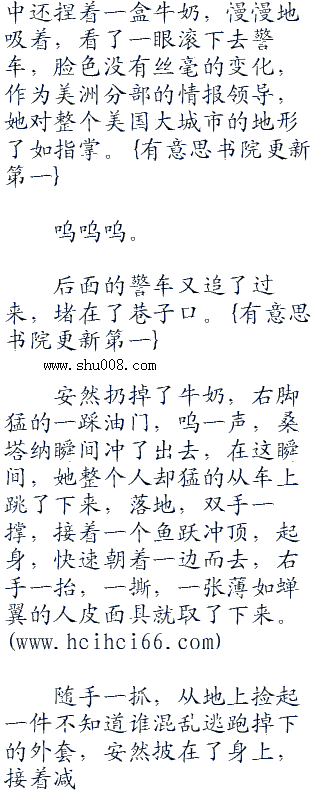 中还捏着一盒牛奶，慢慢地
吸着，看了一眼滚下去警
车，脸色没有丝毫的变化，
作为美洲分部的情报领导，
她对整个美国大城市的地形
了如指掌。{有意思书院更新
第一}
呜呜呜。
后面的警车又追了过
来，堵在了巷子口。{有意思
书院更新第一}
www.shu008.com
安然扔掉了牛奶，右脚
猛的一踩油门，呜一声，桑
塔纳瞬间冲了出去，在这瞬
间，她整个人却猛的从车上
跳了下来，落地，双手一
撑，接着一个鱼跃冲顶，起
身，快速朝着一边而去，右
手一抬，一撕，一张薄如蝉
翼的人皮面具就取了下来。
(www.hcihci66.com)
随手一抓，从地上捡起
一件不知道谁混乱逃跑掉下
的外套，安然披在了身上，
接着减